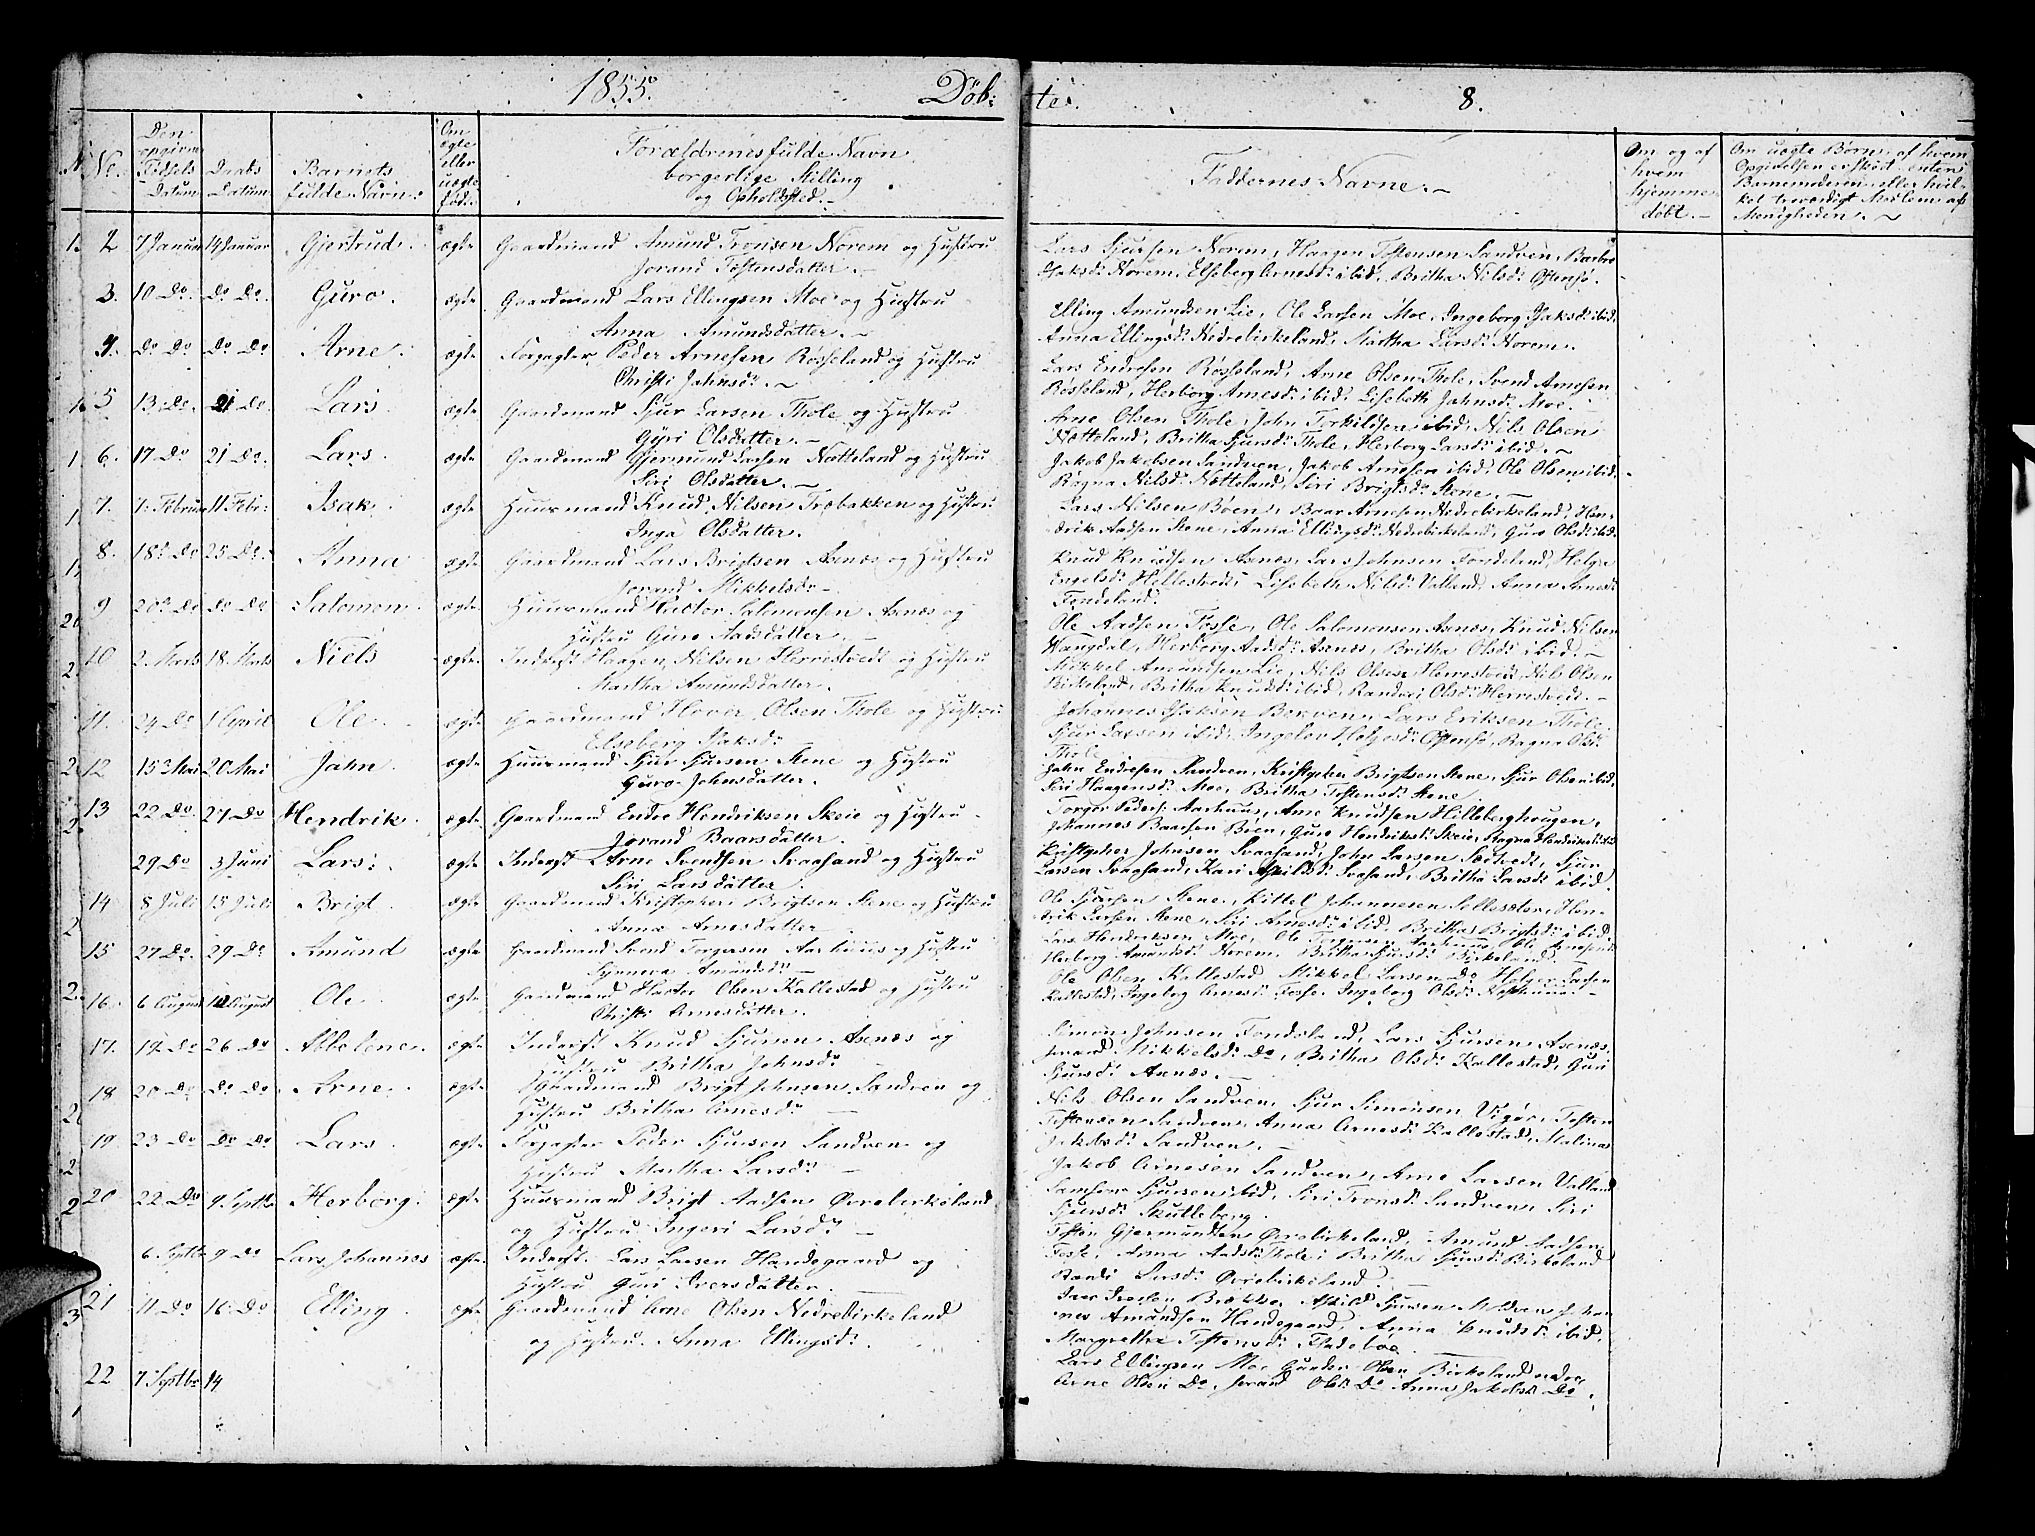 1855. Døb-
te. 8.
No. Den opgivne Fødsels Datum Daabs Datum Barnets fulde Navn: Om ægte eller uægte født. Forældrenes fulde Navn borgerlige Stilling og Opholdsted.-
Faddernes Navne.- Om og af hvem hjemmedøbt.- Om uægte Børn, af hvem Opgivelsen er skeet enten Barnemoderen eller hvilket troværdigt Medlem af Menigheden.
2 7 Januar 14 Januar Gjertrud. ægte Gaardmand Amund Tronsen Norem og Hustru
Jorand Tostensdatter.-
Lars Sjursen Norem, Haagen Tostensen Sandven, Barbro
Isaksd: Norem, Elseberg Arnesd: ibid, Britha Nilsd: Ostensø.
3. 10 Do. Do Do. Guro. ægte Gaardmand Lars Ellingsen Moe og Hustru
Anna Amundsdatter.
Elling Amundsen Lie, Ole Larsen Moe, Ingeborg Isaksd: ibid,
Anna Ellingsd: Nedrebirkeland, Martha Larsd: Norem.
4. Do Do Do Do Arne. ægte Forpagter Peder Arnesen Rosseland og Hustru
Christi Jahnsd:
Lars Endresen Røsseland, Arne Olsen Thole, Svend Arnesen
Røsseland, Herborg Arnesd: ibid, Lisebeth Jahnsd: Moe.
5 13. Do. 21 Do. Lars. ægte Gaardmand Sjur Larsen Thole og Hustru
Gyri Olsdatter.-
Arne Olsen Thole, John Torkildsen ibid, Nils Olsen
Nætteland, Britha Sjursd: Thole, Herborg Larsd: ibid.
6. 17 Do 21 Do. Lars. ægte Gaardmand Gjermund Larsen Nætteland og Hustru
Siri Olsdatter.-
Jakob Jakobsen Sandven, Jakob Arnesen ibid, Ole Olsen ibid.
Ragna Nilsd: Nætteland, Siri Brigtsd: Stene.
7. 7. Februar 11 Febr: Isak. ægte Huusmand Knud Nilsen Træbakken og Hustru
Inga Olsdatter.
Lars Nilsen Bøen, Baar Arnesen Nedrebirkeland, Hen-
drik Aadsen Stene, Anna Ellingsd: Nedrebirkeland, Guro Olsd: ibid.
8. 18. Do 25 Do. Anna ægte Gaardmand Lars Brigtsen Asnæs og Hustru
Jorand Mikkelsd:
Knud Knudsen Asnæs, Lars Johnsen Fondeland, Helga
Engelsd: Hellestvedt, Lisebeth Nilsd: Valland, Anna Arnesd:
Fondeland.
9 20. Do Do Do Salomon. ægte Huusmand Hector Salomonsen Asnæs og
Hustru Guro Aadsdatter.
Ole Aadsen Tosse, Ole Salomonsen Asnæs, Knud Nilsen
Wangdal, Herborg Aadsd: Asnæs, Britha Olsd: ibid.-
10 2. Marts 18. Marts Niels ægte Inderst Haagen Nilsen Herrestvedt og Hustru
Martha Amundsdatter.
Mikkel Amundsen Lie, Nils Olsen Herrestvedt, Nils Olsen
Birkeland, Britha Knudsd: ibid, Randvei Olsd: Herrestvedt.-
11. 24 Do 1 April Ole. ægte Gaardmand Hover Olsen Thole og Hustru
Elseberg Isaksd:
Johannes Isaksen Berven, Lars Eriksen Thole,
Sjur Larsen ibid, Ingelev Helgesd: Ostensø, Ragna Olsd:
Thole
12 15. Mai 20 Mai Jahn. ægte Huusmand Sjur Sjursen Stene og Hustru
Guro Johnsdatter.
Jahn Endresen Sandven, Kristopher Brigtsen Stene, Sjur Olsen ibid,
Siri Haagensd: Moe, Britha Tostensd: Stene.
13 22 Do. 27 Do Hendrik. ægte Gaardmand Endre Hendriksen Skeie og Hustru
Jorand Baarsdatter.
Torger Peders: Aarhuus, Arne Knudsen Hilleberghougen,
Johannes Baarsen Bøen, Guro Hendriksd: Skeie, Ragna Hendriksd: ibid
29 Do 3 Juni Lars: ægte Inderst Arne Svendsen Svaasand og Hustru
Siri Larsdatter.
Kristopher Johnsen Svaasand, John Larsen Sedtvedt, Sjur
Larsen Svaasand, Kari Askilsd: Svaasand, Britha Larsd: ibid.
14 8 Juli 15 Juli Brigt. ægte Gaardmand Kristopher Brigtsen Stene og Hustru
Anna Arnesdatter
Ole Sjursen Stene, Kittel Johannesen Sollesæter, Hen-
drik Larsen Stene, Siri Arnesd: ibid, Britha Brigtsd: ibid.
15 27 Do. 29 Do Amund ægte Gaardmand Svend Torgersen Aarhuus og Hustru
Synneva Amundsd:
Lars Hendriksen Moe, Ole Torgersen Aarhuus, Ole Arnesen
Herborg Amundsd: Norem, Britha Sjursd: Birkeland.
16. 6 August 12 August Ole ægte Gaardmand Hector Olsen Kallestad og Hustru
Christi Arnesdatter.
Ole Olsen Kallestad, Mikkel Larsen Do, Helge Larsen
Kallestad, Ingeborg Arnesd: Tosse, Ingeborg Olsd:
17. 19 Do 26 Do Abbelene. ægte Inderst Knud Sjursen Asenæs og
Hustru Britha Johnsd:
Simon Johnsen Fondeland, Lars Sjursen Asenæs,
Jorand Mikkelsd: Do, Britha Olsd: Kallestad, Guri
Sjursd: Asnæs.
18 20 Do Do Do Arne. ægte Gaardmand Brigt Johnsen Sandven og
Hustru Britha Arnesd:
Nils Olsen Sandven, Sjur Simonsen Vigør, Tosten
Tostensen Sandven, Anna Arnesd: Kallestad, Malina
Jakobsd: Sandven.
19. 23 Do Do Do Lars. ægte Forpagter Peder Sjursen Sandven og
Hustru Martha Larsd:
Jakob Arnesen Sandven, Arne Larsen Valland
Samson Sjursen ibid, Siri Tronsd: Sandven, Siri
Sjursd: Skutleberg.
20 22 Do 9. Septbr Herborg. ægte Huusmand Brigt Aadsen Øvrebirkeland
og Hustru Ingeri Larsd:
Tosten Gjermundsen Øvrebirkeland, Amund Aadsen
Tosse, Anna Aadsd: Thole, Britha Sjursd: Birkeland
Randi Larsd: Øvrebirkeland.
6 Septbr 9 Do Lars Johannes ægte Inderst Lars Larsen Handegaard og
Hustru Guri Iversdatter.
Iver Iversen Brække, Askild Sjursen, Johan-
nes Amundsen Handegaard, Anna Knudsd: ibid,
Margretha Tostensd: Fladebøe.
21 11 Do 16 Do Elling. ægte Gaardmand Arne Olsen Nedrebirkeland
og Hustru Anna Ellingsd:
Lars Ellingsen Moe, Gunder Olsen Birkeland nedre
Arne Olsen Do, Jorand Olsd: Do, Anna Jakobsd: Do
22 7 Septbr 14